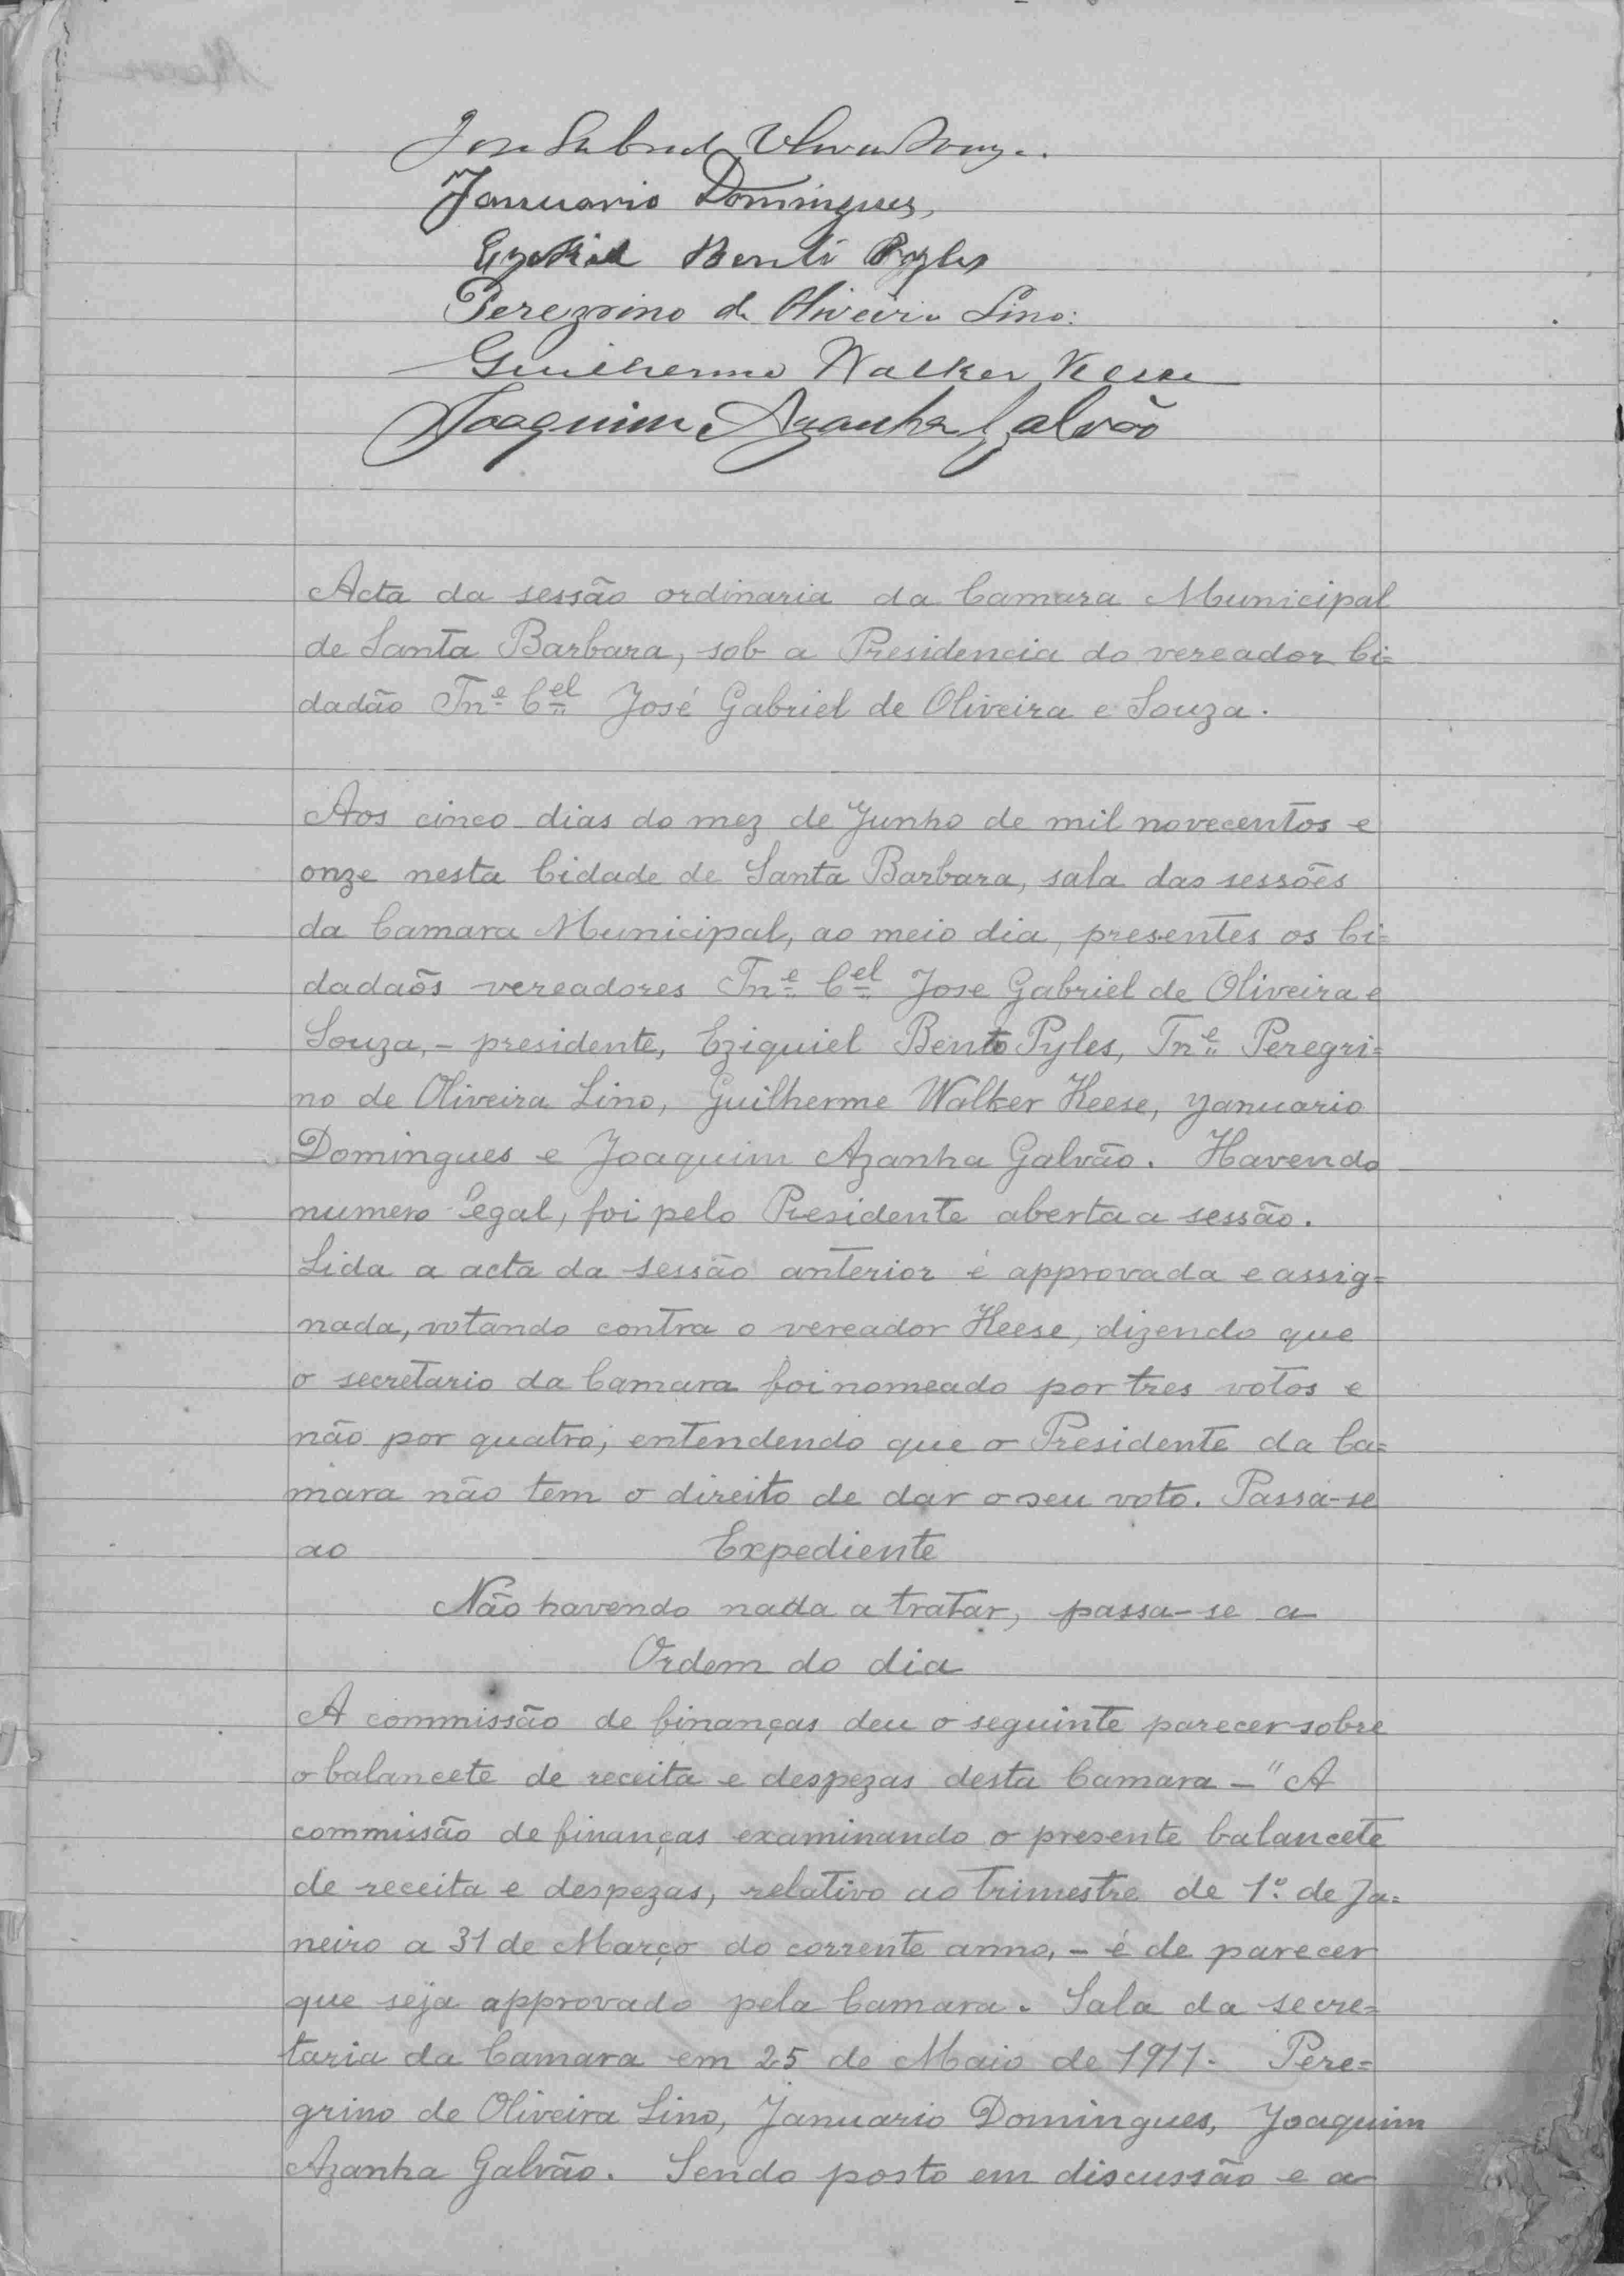 José Gabriel Oliveira Souza.
Januario Domingues,
Ezekiel Bento Pyles
Peregrino de Oliveira Lino.
Guilherme Walker Keese
Joaquim Azanha Galvão
Acta da sessão ordinaria da Camara Municipal
de Santa Barbara, sob a Presidencia do vereador Ci=
dadão Tn.e C.el José Gabriel de Oliveira e Souza.
Aos cinco dias do mez de Junho de mil novecentos e
onze nesta Cidade de Santa Barbara, sala das sessões
da Camara Municipal, ao meio dia, presentes os Ci=
dadaõs vereadores Tn.e C.el Jose Gabriel de Oliveira e
Souza,- presidente, Eziquiel Bento Pyles, Tn.e Peregri=
no de Oliveira Lino, Guilherme Walker Keese, Januario
Domingues e Joaquim Azanha Galvão. Havendo
numero legal, foi pelo Presidente aberta a sessão.
Lida a acta da sessão anterior é approvada e assig=
nada, votando contra o vereador Keese, dizendo que
o secretario da Camara foi nomeado por tres votos e
não por quatro, entendendo que o Presidente da Ca=
mara não tem o direito de dar o seu voto. Passa-se
ao Expediente
Não havendo nada a tratar, passa-se a
Ordem do dia
A commissão de finanças deu o seguinte parecer sobre
o balancete de receita e despezas desta Camara - "A
commissão de finanças examinando o presente balancete
de receita e despezas, relativo ao trimestre de 1º de Ja=
neiro a 31 de Março do corrente anno, - é de parecer
que seja approvado pela Camara. Sala da secre=
taria da Camara em 25 de Maio de 1911. Pere=
grino de Oliveira Lino, Januario Domingues, Joaquim
Azanha Galvão. Sendo posto em discussão e a